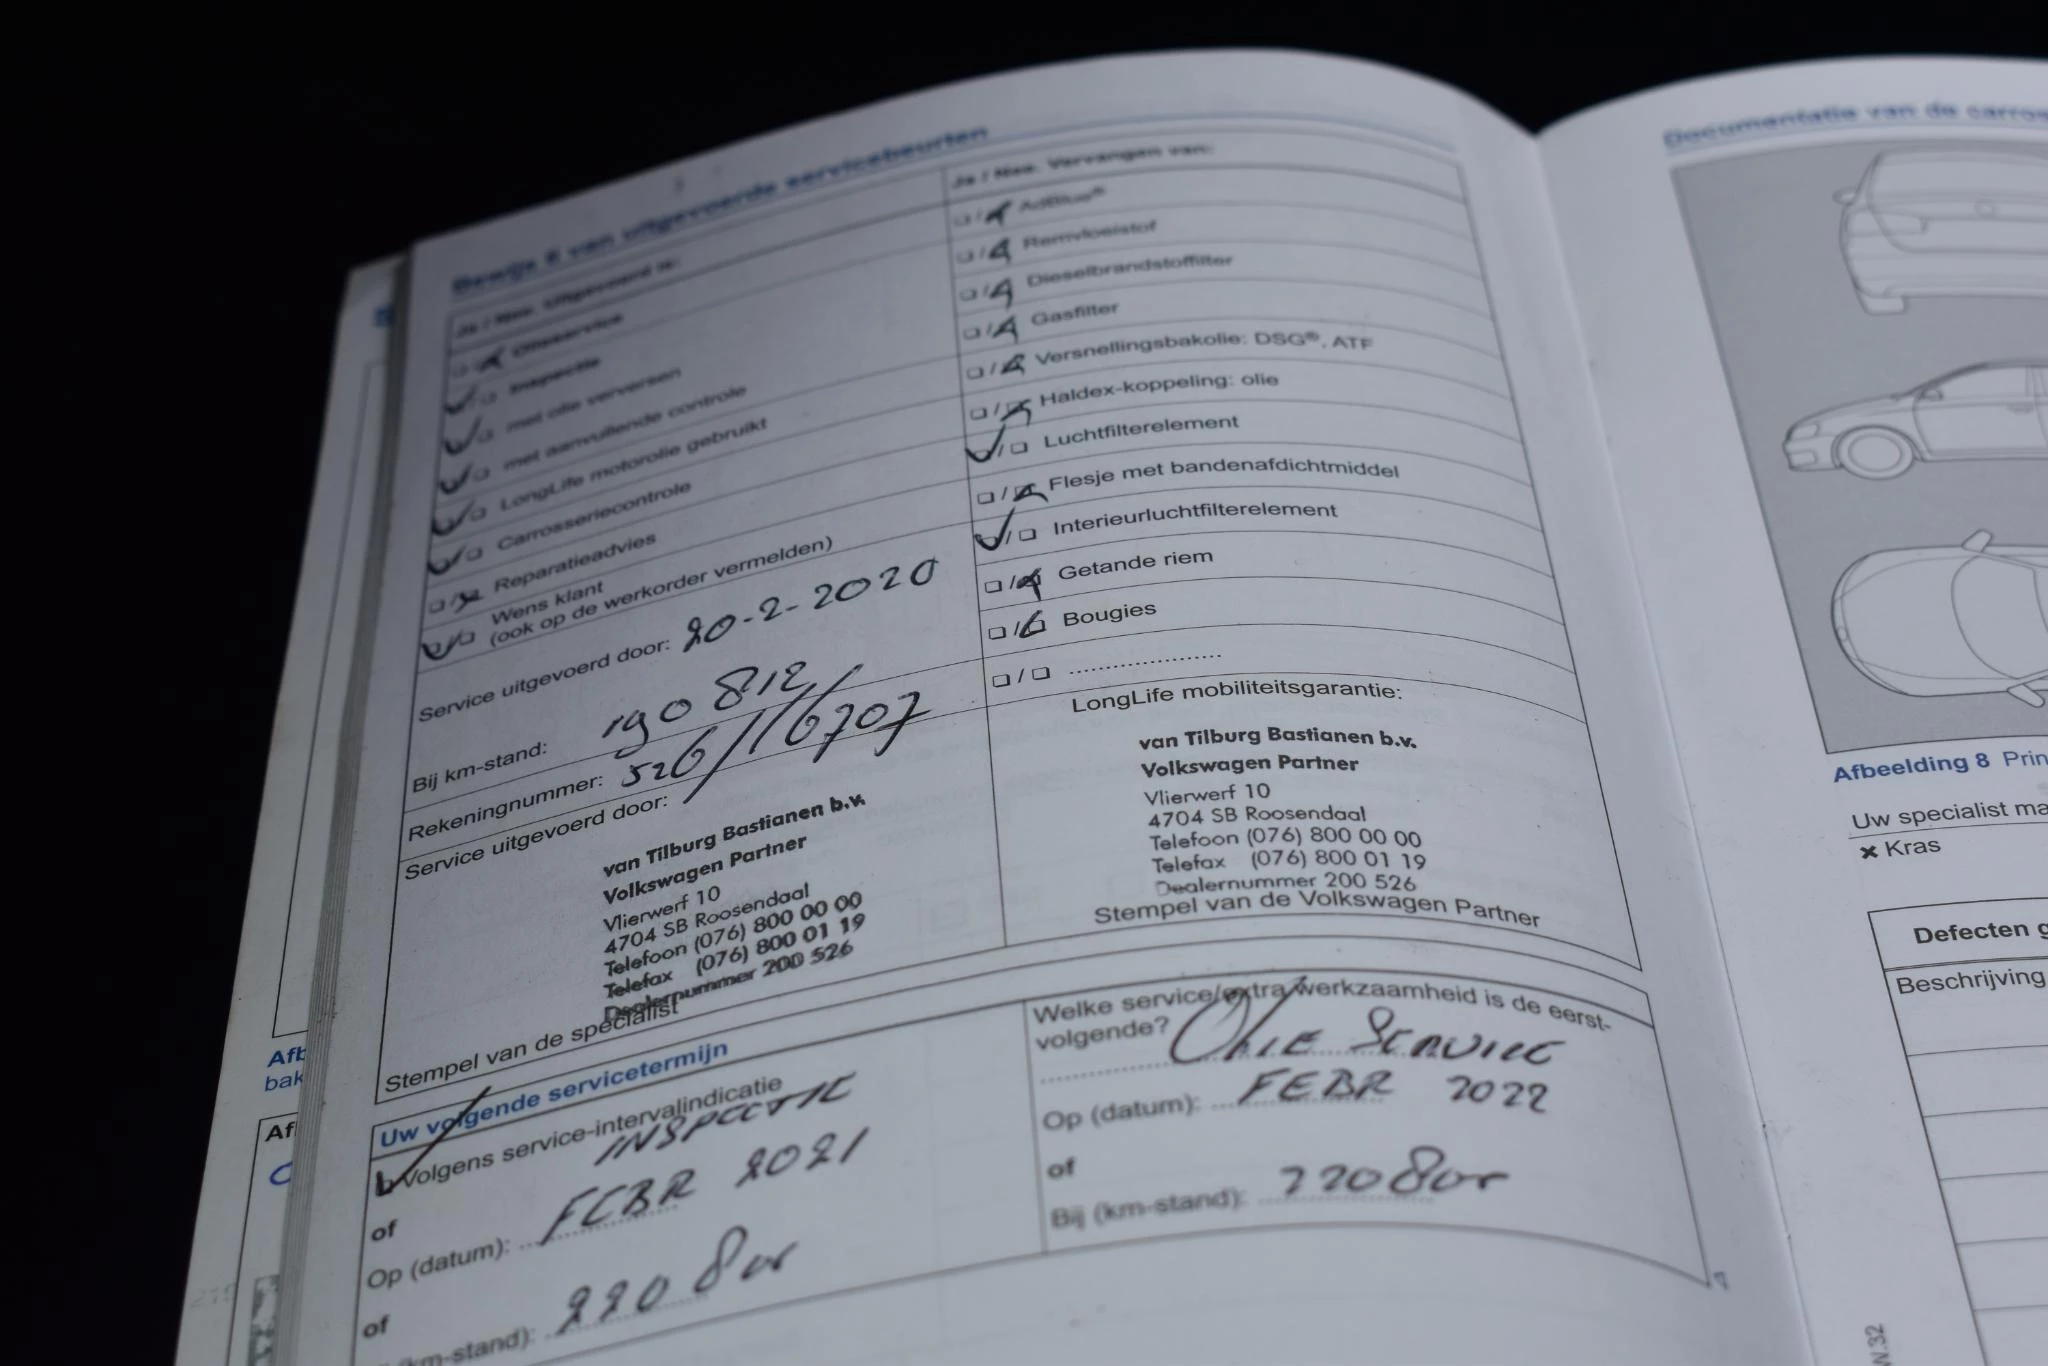 Bewijs 6 van uitgevoerde servicebeurten
Ja / Nee. Uitgevoerd is:
Olieservice
Inspectie
met olie verversen
met aanvullende controle
LongLife motorolie gebruikt
Carrosseriecontrole
Reparatieadvies
Wens klant
(ook op de werkorder vermelden)
Service uitgevoerd door: 20-2-2020
Bij km-stand: 190 812
Rekeningnummer: 526/116707
Service uitgevoerd door:
van Tilburg Bastianen b.v.
Volkswagen Partner
Vlierwerf 10
4704 SB Roosendaal
Telefoon (076) 800 00 00
Telefax (076) 800 01 19
Dealernummer 200 526
Stempel van de specialist
Ja / Nee. Vervangen van:
AdBlue®
Remvloeistof
Dieselbrandstoffilter
Gasfilter
Versnellingsbakolie: DSG®, ATF
Haldex-koppeling: olie
Luchtfilterelement
Flesje met bandenafdichtmiddel
Interieurluchtfilterelement
Getande riem
Bougies
....................
LongLife mobiliteitsgarantie:
van Tilburg Bastianen b.v.
Volkswagen Partner
Vlierwerf 10
4704 SB Roosendaal
Telefoon (076) 800 00 00
Telefax (076) 800 01 19
Dealernummer 200 526
Stempel van de Volkswagen Partner
Uw volgende servicetermijn
Volgens service-intervalindicatie
INSPECTIE
of
Op (datum): FEBR 2021
of
(km-stand):
Welke service/extra werkzaamheid is de eerst-
volgende? OLIE SERVICE
Op (datum): FEBR 2022
of
Bij (km-stand):
Documentatie van de carros
Afbeelding 8 Prin
Uw specialist ma
Kras
Defecten g
Beschrijving